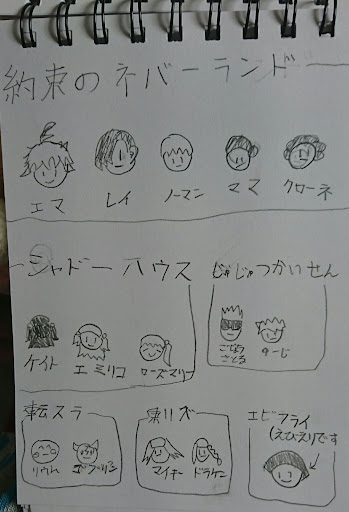 約束のネバーランド
エマ レイ ノーマン ママ クローネ
シャドーハウス
ケイト エミリコ ローズマリー
じゅじゅつかいせん
ごじょう さとる ゆーじ
転スラ
リウム ゴブリン
東リズ
マイキー ドラケン
エビフライ
(えびえりです